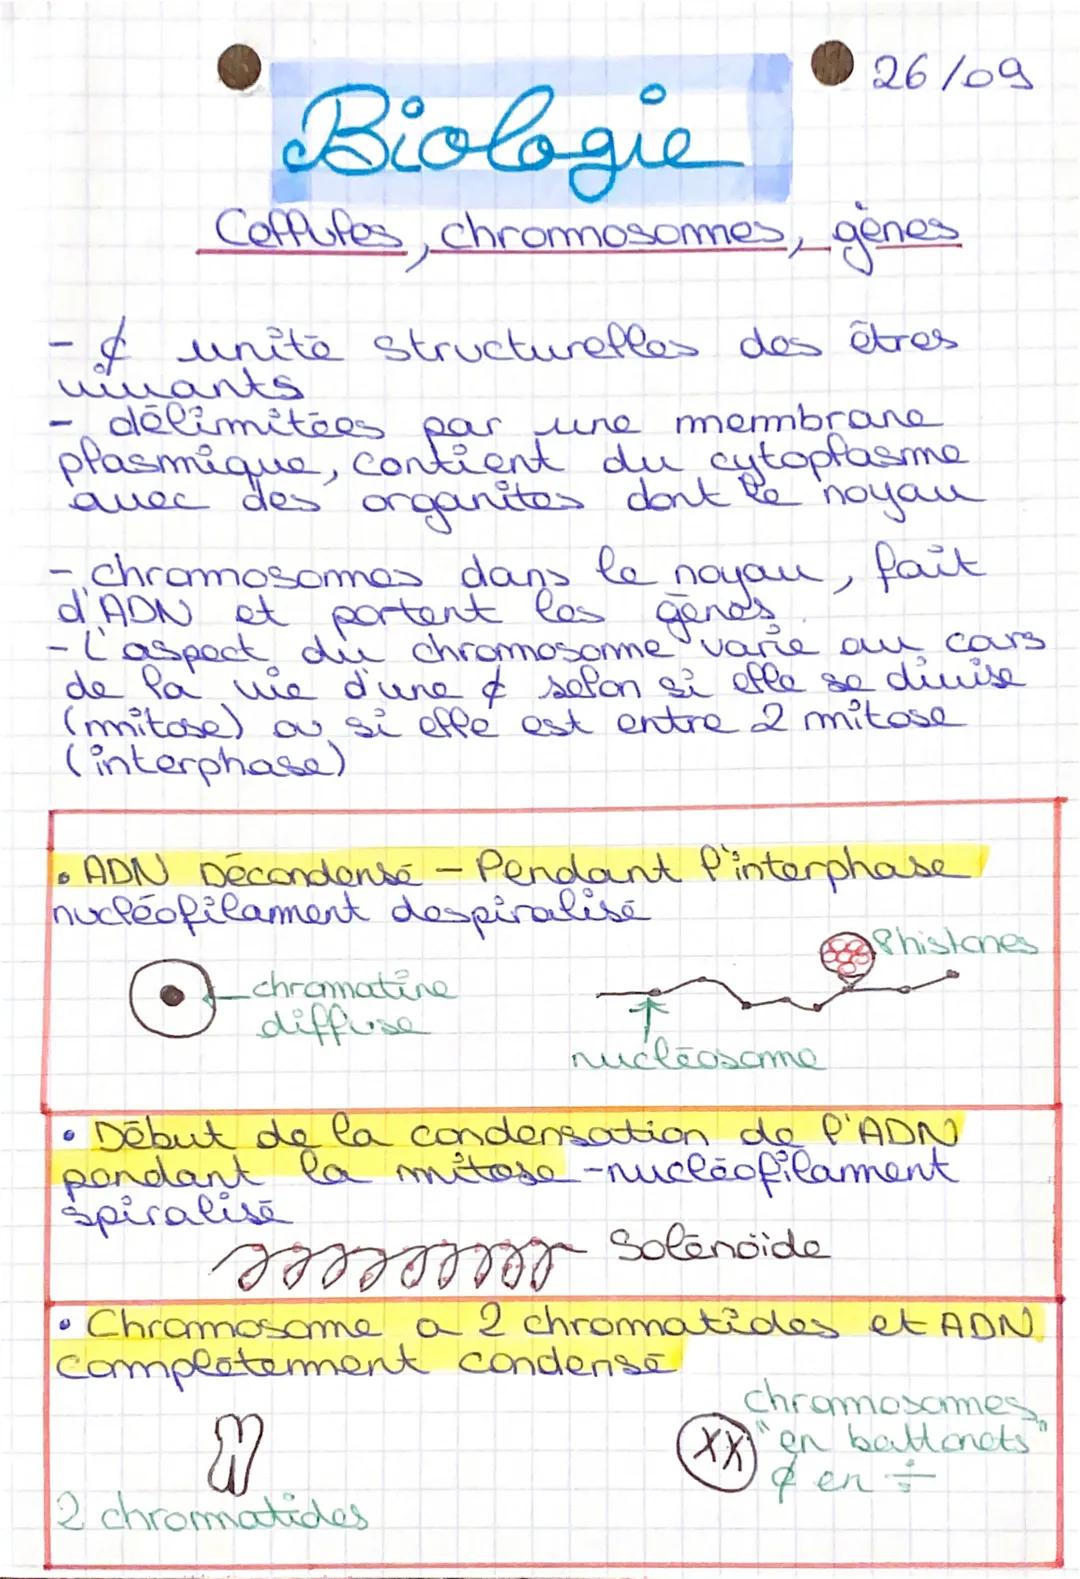 26/09
Biologie
Cellules, chromosomes, gènes
- ¢ unité structurelles des êtres
vivants
- délimitées par une membrane
plasmique, contient du cytoplasme
avec des organites dont le noyau
- chromosomes dans le noyau, fait
d'ADN et portent les gènes.
- L'aspect du chromosome varie au cours
de la vie d'une ¢ selon si elle se divise
(mitose) ou si elle est entre 2 mitose
(interphase)
• ADN Décondensé - Pendant l'interphase
nucléofilament despiralisé
8 histones
chromatine
diffuse
nucléosome
• Début de la condensation de l'ADN
pendant la mitose - nucléofilament
spiralisé
Solénoïde
• Chromosome a 2 chromatides et ADN
complètement condensé
chromosomes
"en battonets"
XX
¢ en ÷
2 chromatides